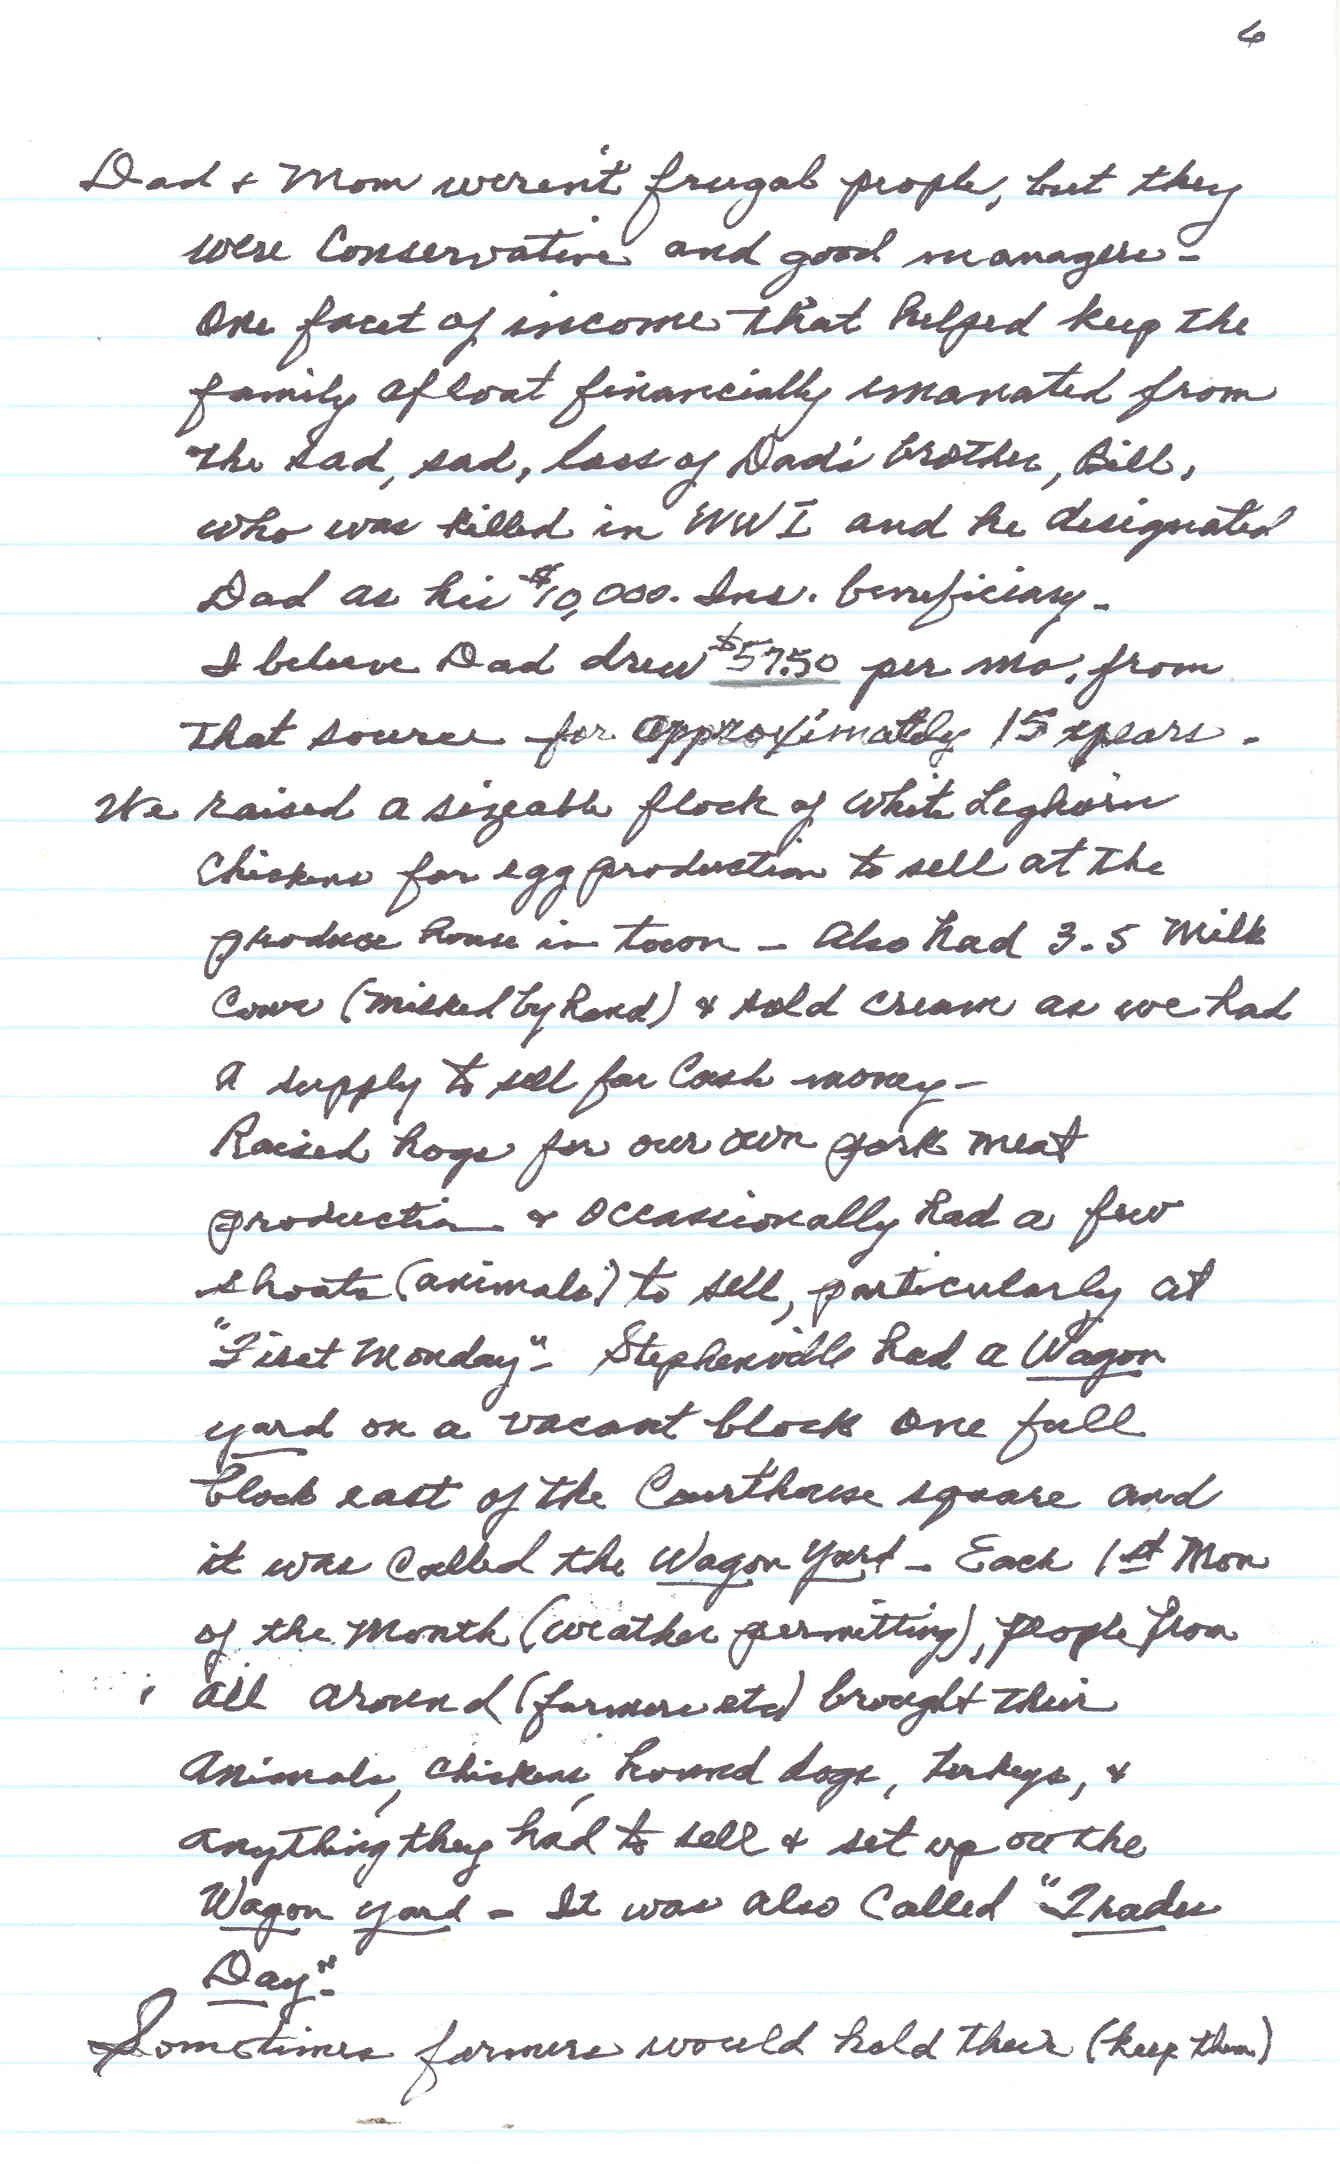 6
Dad + Mom weren't frugal people, but they
were Conservative and good managers -
One facet of income that helped keep the
family afloat financially emanated from
the sad, sad, loss of Dad's brother, Bill,
who was killed in WWI and he designated
Dad as his $10,000. Ins. beneficiary -
I believe Dad drew $57.50 per mo. from
that source for approximately 15 years -
We raised a sizeable flock of White Leghorn
Chickens for egg production to sell at the
produce house in town - Also had 3-5 Milk
Cows (milked by hand) + sold cream as we had
a supply to sell for Cash money -
Raised hogs for our own pork meat
production + Occassionally had a few
shoats (animals) to sell, particularly at
"First Monday" - Stephenville had a Wagon
yard on a vacant block one full
block east of the Courthouse square and
it was Called the Wagon Yard - Each 1st Mon
of the Month (weather permitting), people from
all around (farmers etc) brought their
Animals, chickens, hound dogs, turkeys, +
anything they had to sell + set up on the
Wagon yard - It was also Called "Trades
Day" -
Sometimes farmers would hold their (keep them)